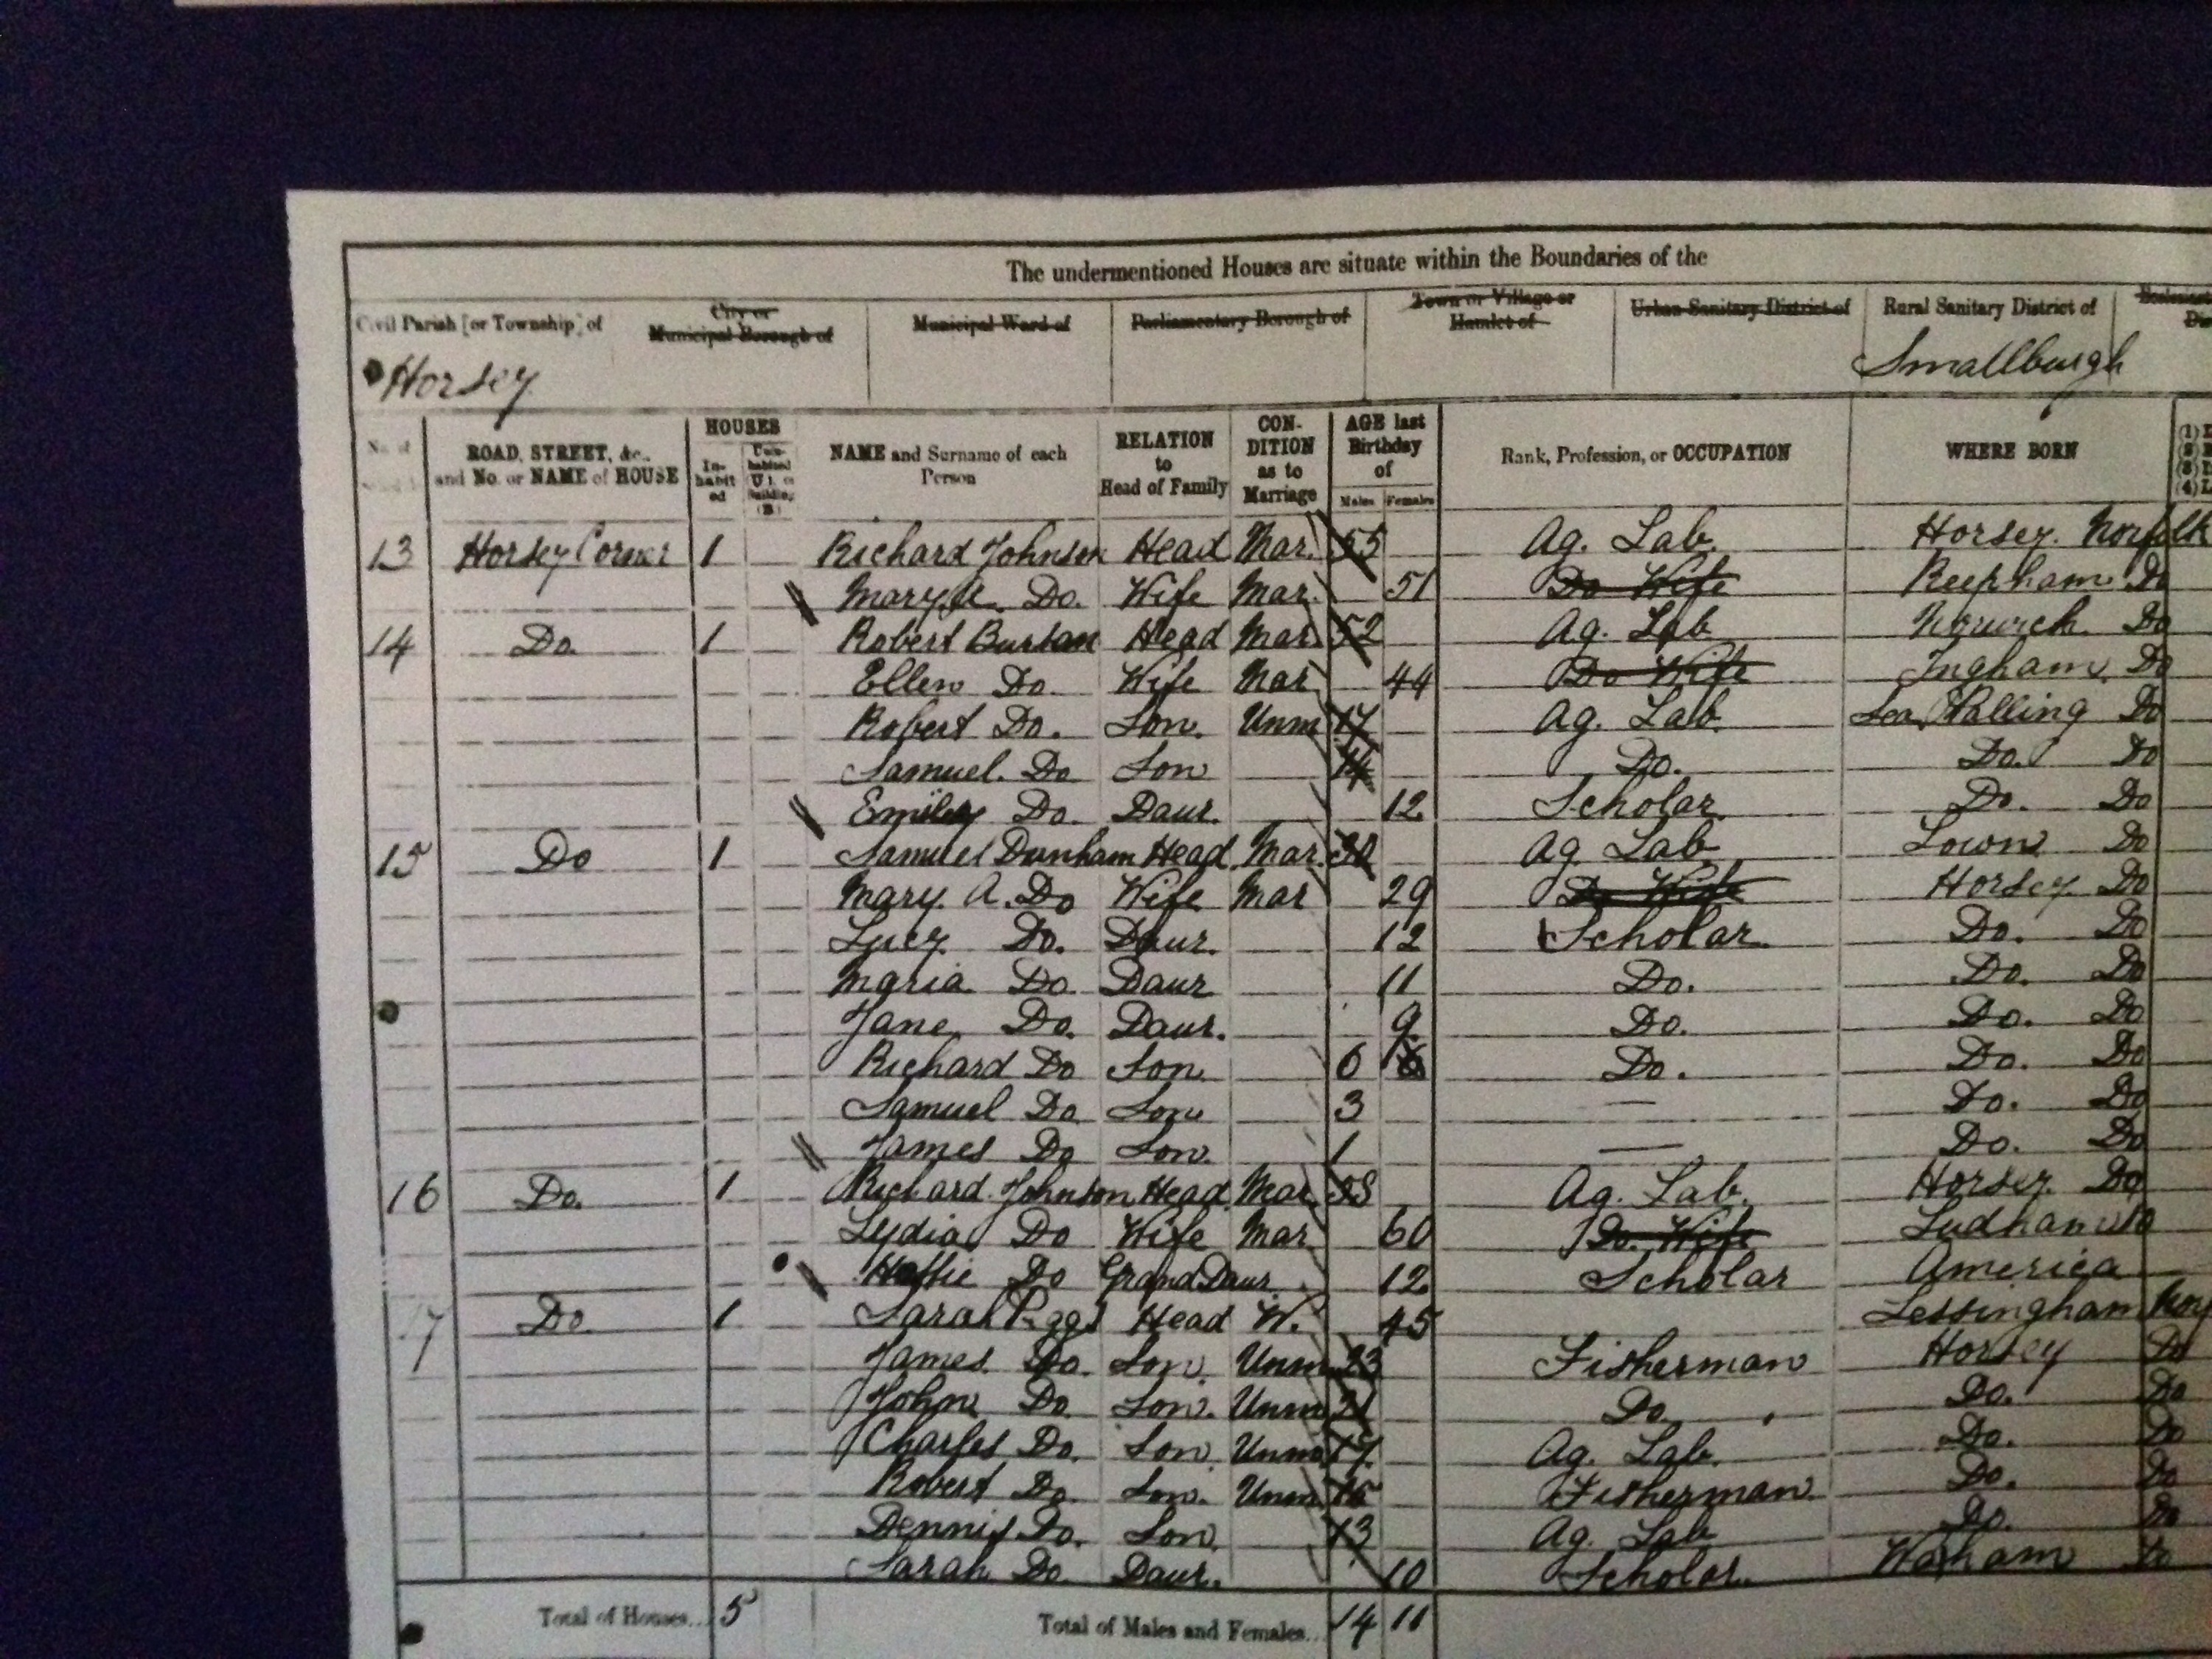 The undermentioned Houses are situate within the Boundaries of the
Civil Parish [or Township] of City or Municipal Borough of Municipal Ward of Parliamentary Borough of Town or Village or Hamlet of Urban Sanitary District of Rural Sanitary District of
Horsey Smallburgh
No. of ROAD, STREET, &c., and No. or NAME of HOUSE HOUSES In-habit ed Un-habited (U.), or Building (B) NAME and Surname of each Person RELATION to Head of Family CON-DITION as to Marriage AGE last Birthday of Males Females Rank, Profession, or OCCUPATION WHERE BORN
13 Horsey Corner 1 Richard Johnson Head Mar. 55 Ag. Lab. Horsey. Norfolk
Mary A. Do. Wife Mar. 51 Do Wife Reepham Do
14 Do. 1 Robert Head Mar. 52 Ag. Lab Norwich Do
Ellen Do. Wife Mar 44 Do Wife Ingham Do
Robert Do. Son. Unm 17 Ag. Lab. Sea Palling Do
Samuel. Do Son 14 Do. Do. Do
Emiley Do. Daur. 12 Scholar. Do. Do
15 Do 1 Samuel Dunham Head Mar. Ag Lab Do
Mary A. Do Wife Mar 29 Do Wife Horsey Do
Lucy Do. Daur. 12 Scholar. Do. Do
Maria Do. Daur 11 Do. Do. Do
Jane Do. Daur. 9 Do. Do. Do
Richard Do Son 6 6 Do. Do. Do
Samuel Do Son 3 — Do. Do
James Do Son. 1 — Do. Do
16 Do. 1 Richard Johnson Head Mar. 58 Ag. Lab. Horsey. Do
Lydia Do Wife Mar 60 Do. Wife Ludham Do
Do Grand Daur 12 Scholar America
17 Do. 1 Sarah Head W. 45 Lessingham Nor
James Do. Son. Unm 23 Fisherman Horsey Do
John Do Son. Unm 21 Do. Do. Do
Charles Do. Son. Unm 17 Ag. Lab. Do. Do
Robert Do. Son. Unm 15 Fisherman. Do. Do
Dennis Do. Son. 13 Ag. Lab Do. Do
Sarah Do Daur. 10 Scholar. Waxham Do
Total of Houses... 5 Total of Males and Females... 14 11